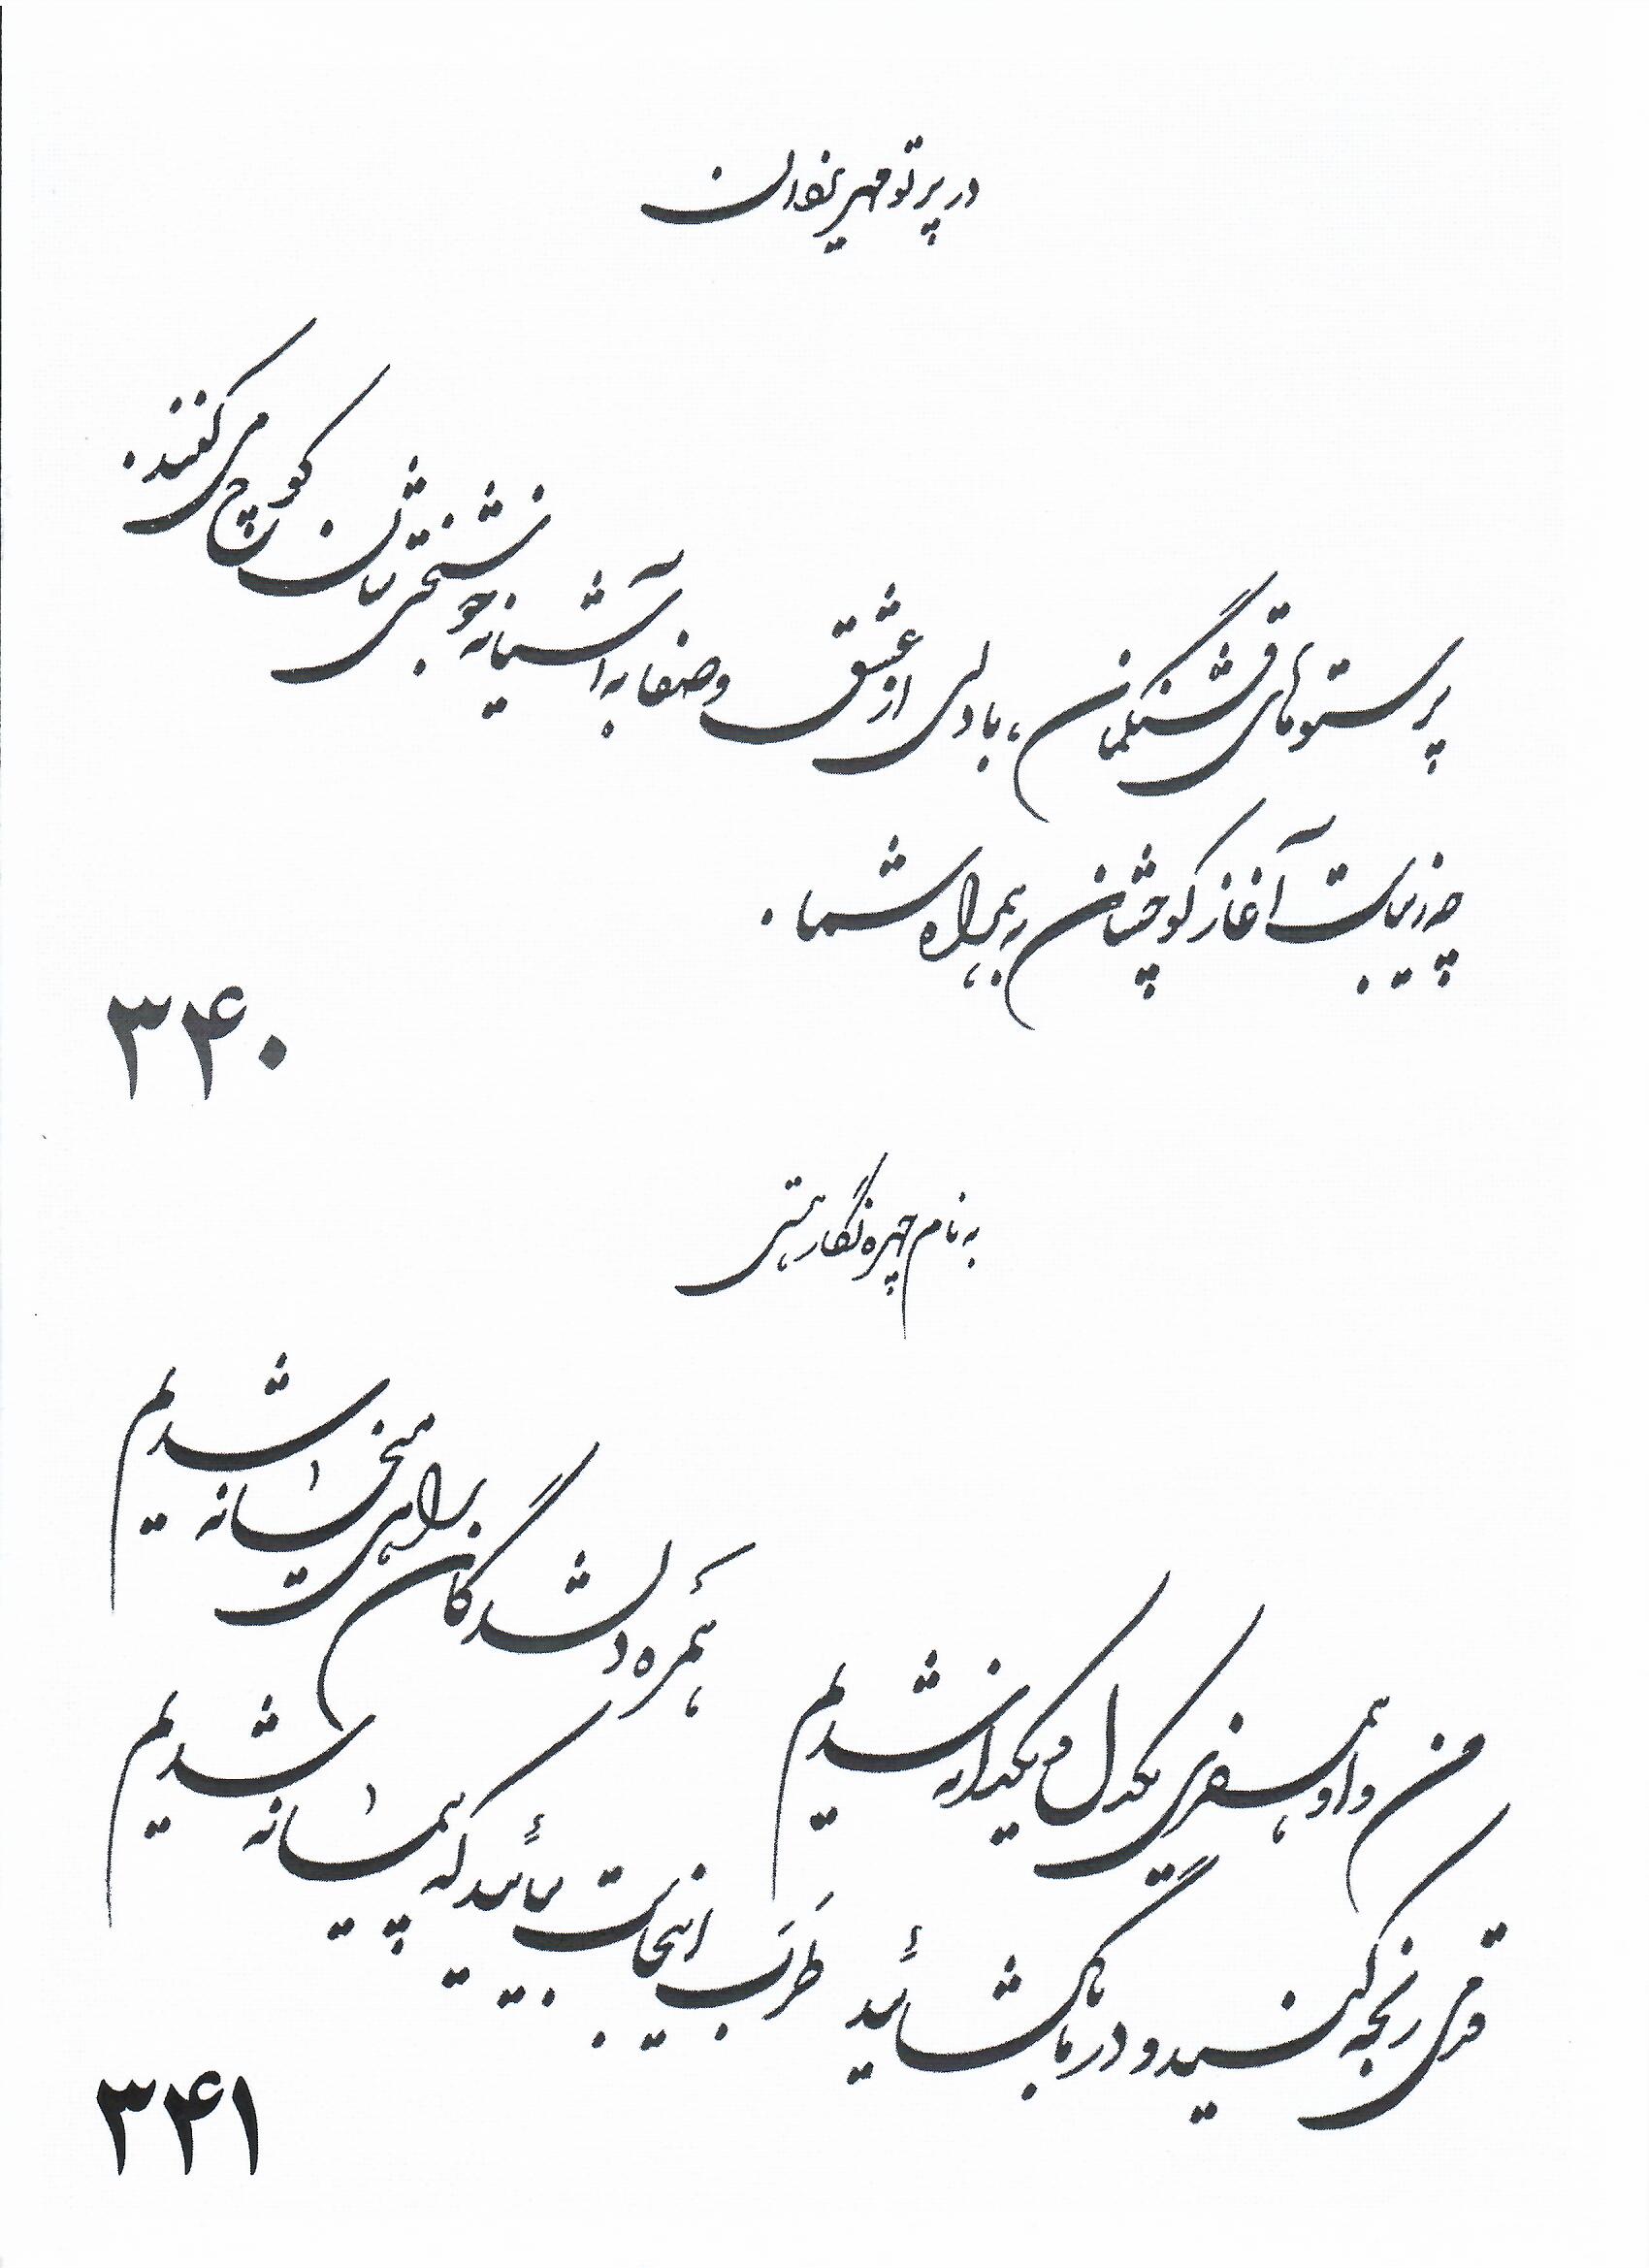 در پرتو مهر یزدان
پرستوهای قشنگمان، با دلی از عشق و صفا به آشیانه خوشبختی‌شان کوچ می‌کنند.
چه زیباست آغاز کوچشان به همراه شما.
۳۴۰
به نام چهره نگار هستی
من و او همسفری یکدل و یکدانه شدیم
همره دلشدگان راهی میخانه شدیم
قدمی رنجه کنید و در ما بگشائید
طَرَب اینجاست بیائید که پیمانه شدیم
۳۴۱